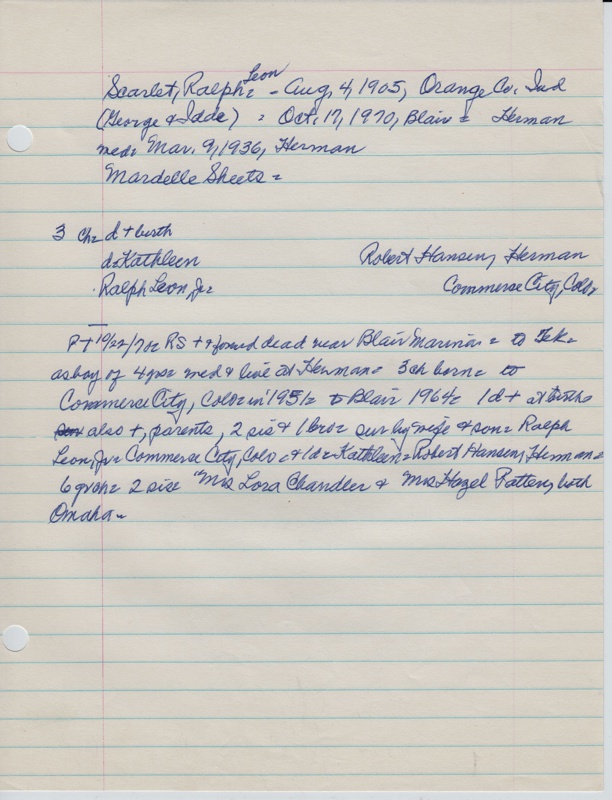 Leon
Scarlet, Ralph = - Aug. 4, 1905, Orange Co. Ind
(George & Idde) = Oct. 17, 1970, Blair = Herman
med= Mar. 9, 1936, Herman
Mardelle Sheets =
3 ch= d + birth
d= Kathleen Robert Hansen, Herman
Ralph Leon, Jr= Commerce City, Colo=
P+ 10/22/70= RS + found dead near Blair Marina = to Tek=
as boy of 4 yrs= med & live at Herman= 3 ch born= to
Commerce City, Colo= in 1951= to Blair 1964= 1 d + at birth=
also +, parents, 2 sis & 1 bro= sur by wife & son= Ralph
Leon, Jr= Commerce City, Colo= & 1 d= Kathleen= Robert Hansen, Herman=
6 grch= 2 sis= "Mrs Lora Chandler & "Mrs Hazel Patten, both
Omaha=